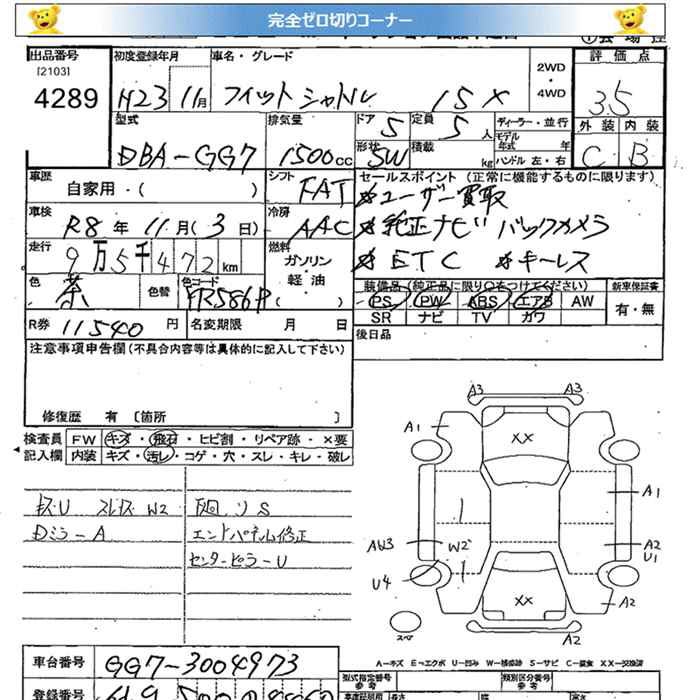 完全ゼロ切りコーナー
出品番号 初度登録年月 車名・グレード 評価点
[2103] 2WD・4WD
4289 H23 11月 フィットシャトル 15X 35
型式 排気量 ドア 5 定員 5人 ディーラー・並行 外装 内装
モデル年式 年
DBA-GG7 1500cc 形状 SW 積載 kg ハンドル 左・右 C B
車歴 シフト セールスポイント (正常に機能するものに限ります)
自家用・( ) FAT ※ユーザー買取
車検 冷房
R8年 11月(3日) AAC ※純正ナビ バックカメラ
走行 燃料
9万5千472km ガソリン・軽油 ※ETC ※キーレス
色 色替 色コード 装備品 (純正品に限り○をつけてください) 新車保証書
茶 YR586P( ) PS PW ABS エアB AW 有・無
SR ナビ TV カワ
R券 11540円 名変期限 月 日
後日品
注意事項申告欄 (不具合内容等は具体的に記入して下さい)
修復歴 有 〔箇所 〕
検査員 FW キズ・飛石・ヒビ割・リペア跡・×要
記入欄 内装 キズ・汚レ・コゲ・穴・スレ・キレ・破レ
A3 A3
A1 XX
A1
AW3 W2 A2
U1
U4
XX A2
スペア A2
Dミラ-A エンドパネル修正
センターピラーU
A-キズ E-エクボ U-凹み W-補修跡 S-サビ C-腐食 XX-交換済
車台番号 GG7-3004973
型式指定番号 類別区分番号
登録番号 参考 参考